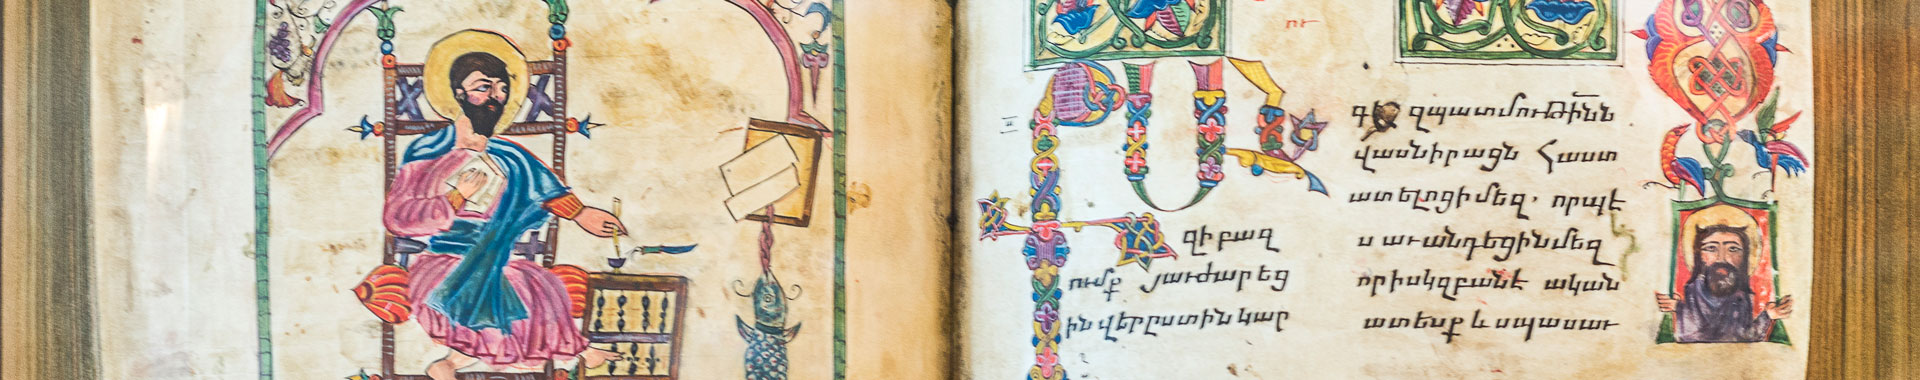 ՔԱՆ
զի բազ
ումք յաւժարեց
ին վերըստին կար
զպատմութիւնն
վասն իրացն Հաստ
ատելոց ի մեզ. որպէ
ս աւանդեցին մեզ
որ ի սկզբանէ ական
ատեսք և սպասաւ